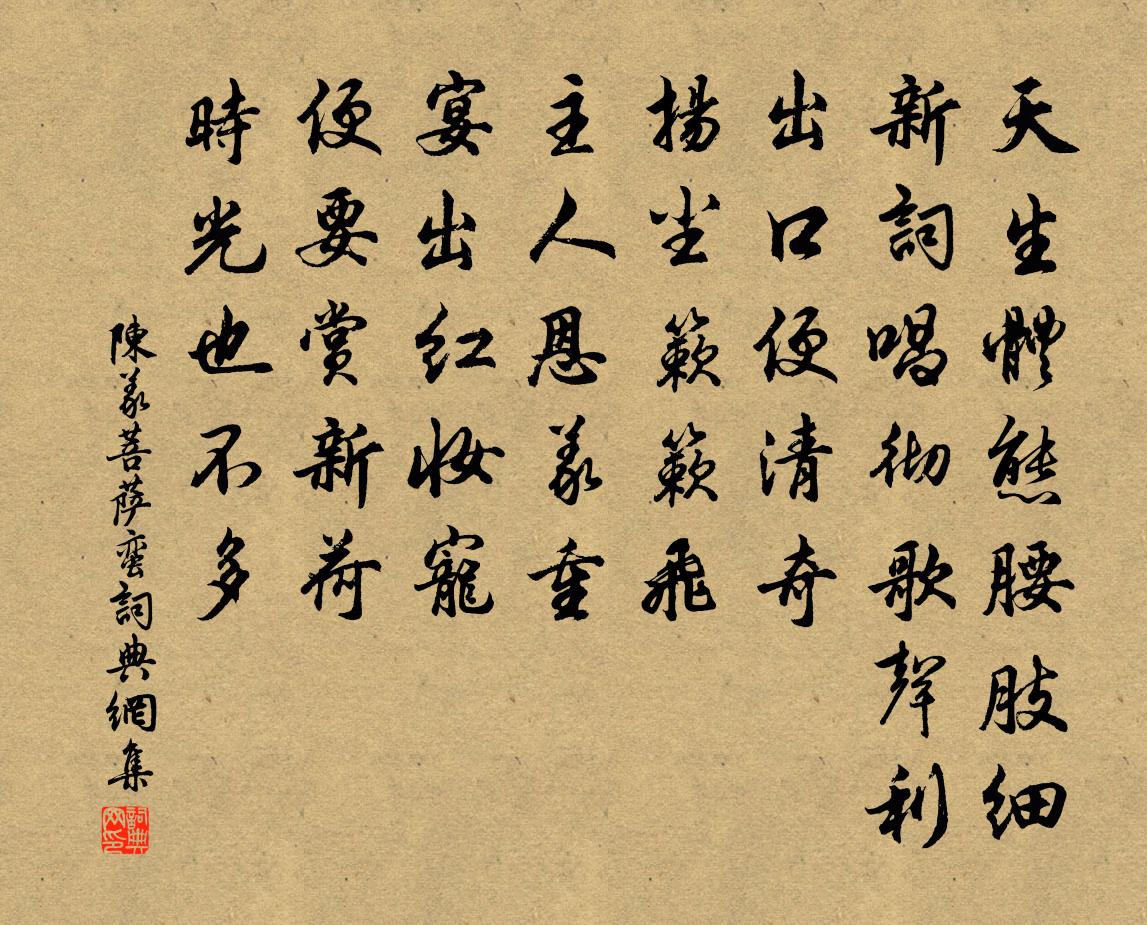 天生體態腰肢細
新詞唱徹歌聲利
出口便清奇
揚塵簌簌飛
主人恩義重
宴出红妝寵
便要賞新荷
時光也不多
陳義菩薩蛮詞典網集
詞典网印